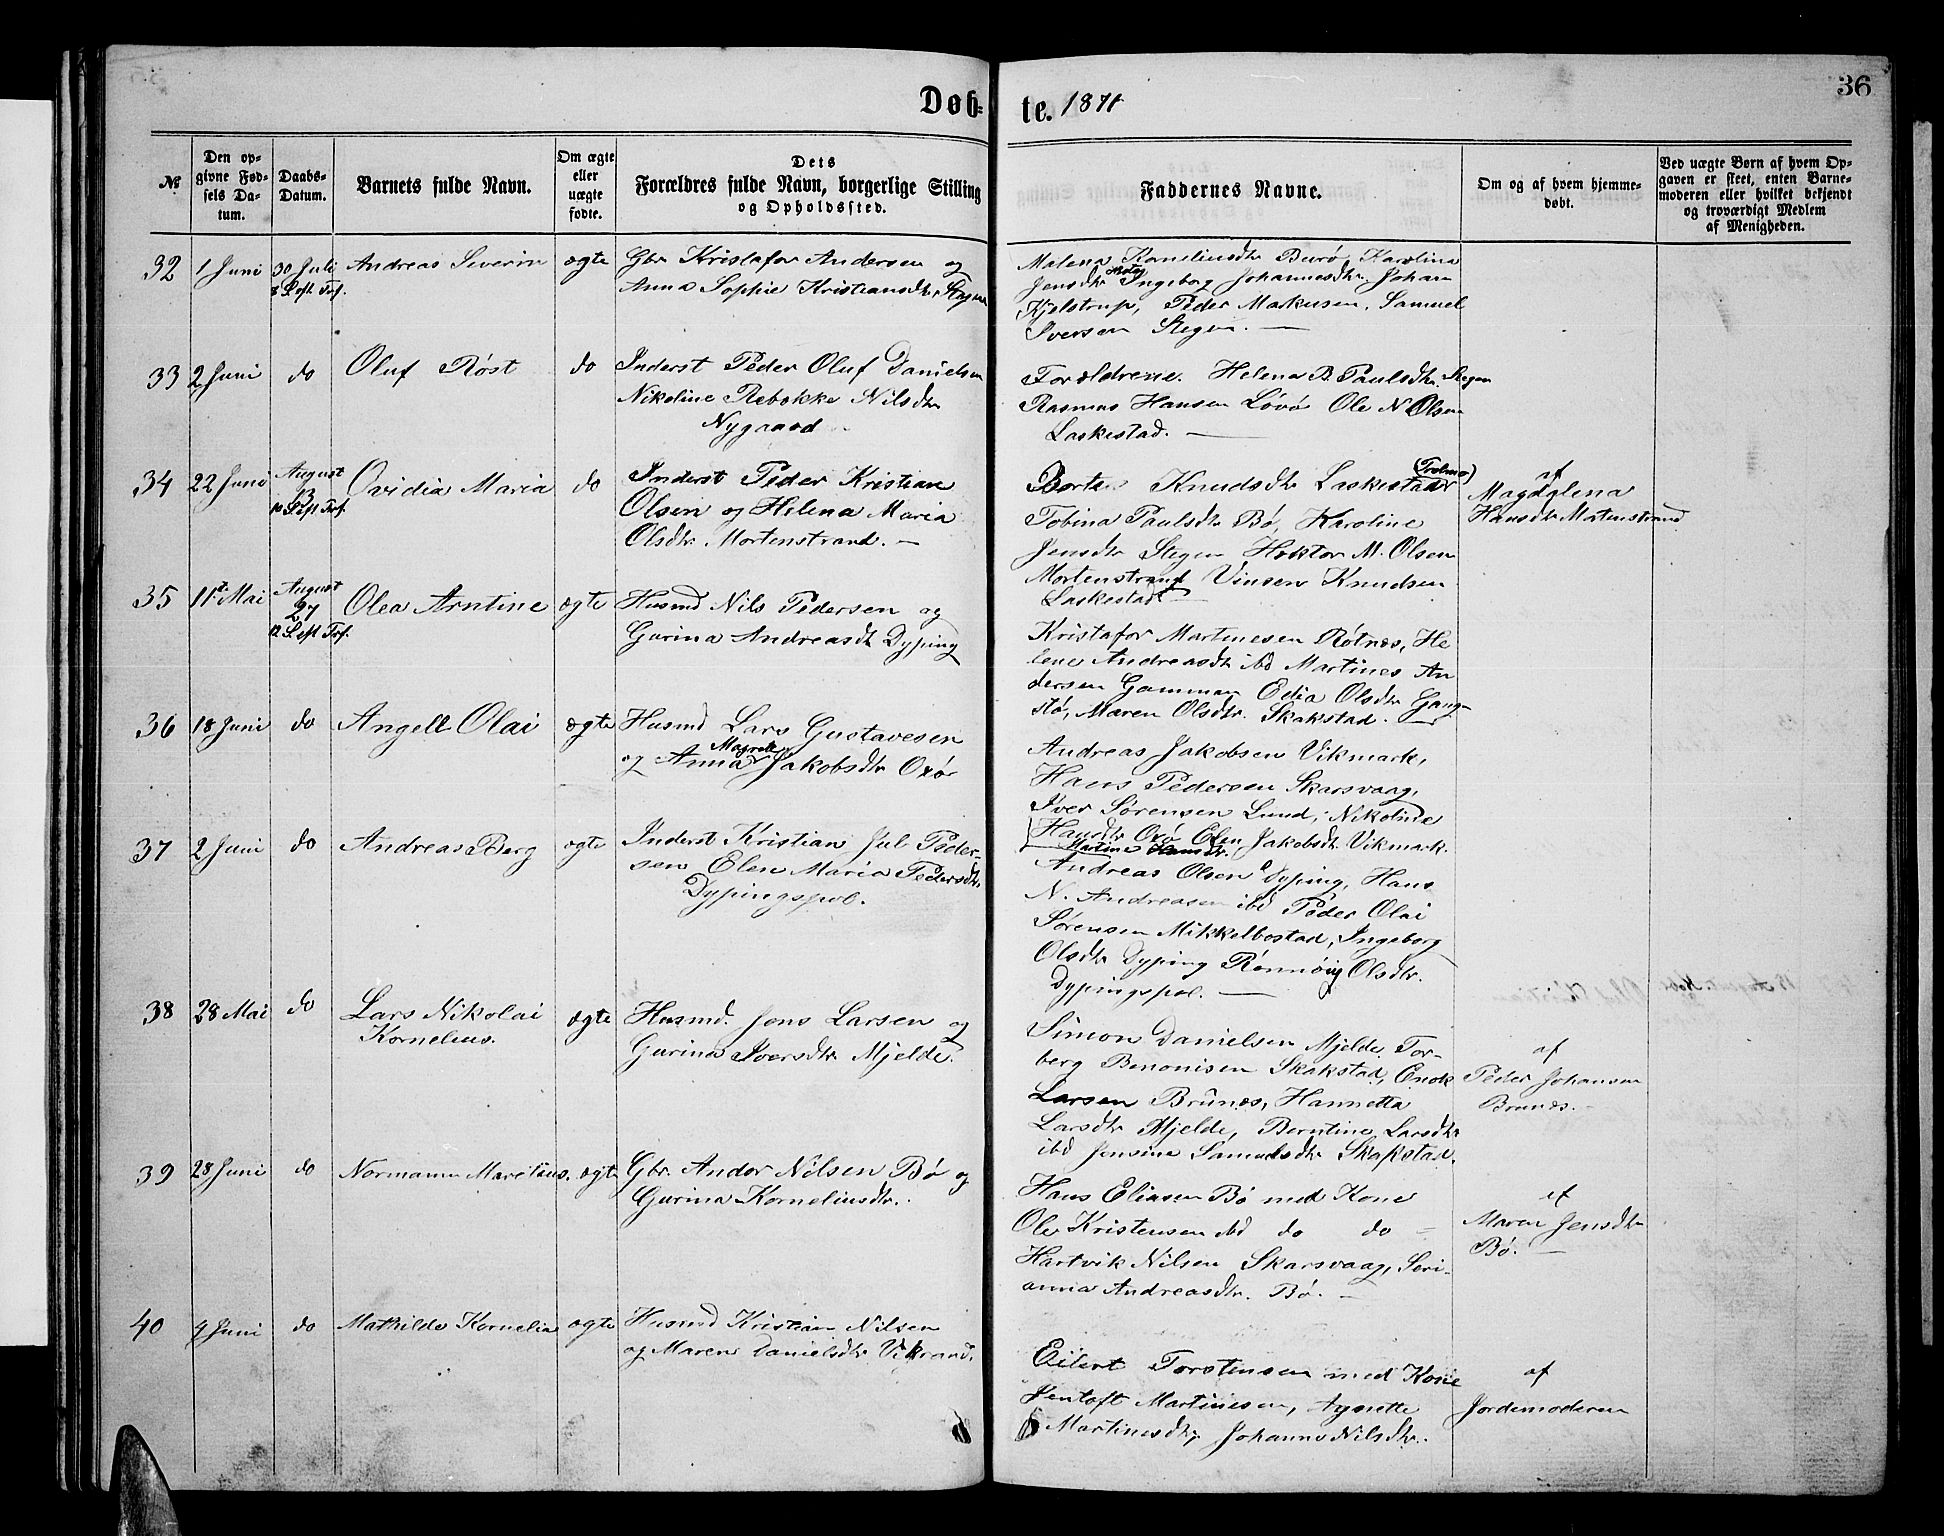 36
Døb-
te. 1871
№
Den op-
givne Fød-
sels Da-
tum.
Daabs-
Datum.
Barnets fulde Navn.
Om ægte
eller
uægte
fødte.
Dets
Forældres fulde Navn, borgerlige Stilling
og Opholdssted.
Faddernes Navne.
Om og af hvem hjemme-
døbt.
Ved uægte Børn af hvem Op-
gaven er skeet, enten Barne-
moderen eller hvilket bekjendt
og troværdigt Medlem
af Menigheden.
32
1 Juni
30 Juli
8 S. eft Tref.
Andreas Severin
ægte
Gbr Kristafor Andersen og
Anna Sophie Kristiansdtr,
Malena Korneliusdtr Burø Karolina
Jensdtr Ingeborg Johannesdtr, Johan
Kjelstrup, Peder Makusen, Samuel
Iversen Stegen. —
33
2 Juni
do
Oluf Røst
do
Inderst Peder Oluf Danielsen
Nikoline Rebekke Nilsdtr
Nygaard
Forældrene. Helena B. Paulsdtr. Stegen
Rasmus Hansen Løvø Ole N Olsen
Laskestad. —
34
22 Juni
August
13
10 S. eft Tref.
Ovidia Maria
do
Inderst Peder Kristian
Olsen og Helena Maria
Olsdtr. Mortenstrand. —
Knudsdtr Laskestad
Tobina Paulsdtr Bø, Karoline
Jensdtr Stegen Hektor M. Olsen
Mortenstrand Vinsen Knudsen
Laskestad —
af
Magdalena
Hansdtr Mortenstrand
35
11te Mai
August
27
12 S. eft Tref.
Olea Arntine
ægte
Husmd Nils Pedersen og
Gurina Andreasdt Dyping
Kristafor Martinesen Røtnes, He-
lene Andreasdtr ibd Martines An
dersen Gamman Edia Olsdtr Gang-
stø, Maren Olsdtr. Skakstad. —
36
18 Juni
do
Angell Olai
ægte
Husmd Lars Gustavesen
og Anna Magrete Jakobsdtr Oxø
Andreas Jakobsen Vikmark,
Hans Pedersen Skarsvaag,
Iver Sørensen Lund, Nikoline
Hansdtr Oxø Elen Jakobsdtr Vikmark.
37
2 Juni
do
Andreas Berg
ægte
Inderst Kristian Jul Peder-
sen Elen Maria Pedersdtr.
Dypingspol.
Martine Hansdtr.
Andreas Olsen Dyping, Hans
N. Andreasen ibd Peder Olai
Sørensen Mikkelbostad, Ingeborg
Olsdtr Dyping Rønnøug Olsdtr.
Dypingspol. —
38
28 Mai
do
Lars Nikolai
Kornelius.
ægte
Husmd. Jens Larsen og
Gurina Iversdtr Mjelde.
Simon Danielsen Mjelde, Tor-
berg Benonisen Skakstad, Enok
Larsen Brunes, Hannetta
Larsdtr Mjelde, Berntine Larsdtr
ibd Jensine Samuelsdtr Skakstad.
af
Peder Johansen
Brunes. —
39
28 Juni
do
Normann Marelius.
ægte
Gbr. Andor Nilsen Bø og
Gurina Korneliusdtr.
Hans Eliasen Bø med Kone
Ole Kristensen ibd do do —
Hartvik Nilsen Skarsvaag, Seri-
anna Andreasdtr. Bø. —
af
Maren Jensdtr
Bø. —
40
4 Juni
do
Mathilde Kornelia
ægte
Husmd Kristian Nilsen
og Maren Danielsdtr Vikrand.
Eilert Torstensen med Kone
Jentoft Martinesen, Agnette
Martinesdtr, Johanne Nilsdtr.
af
Jordemoderen